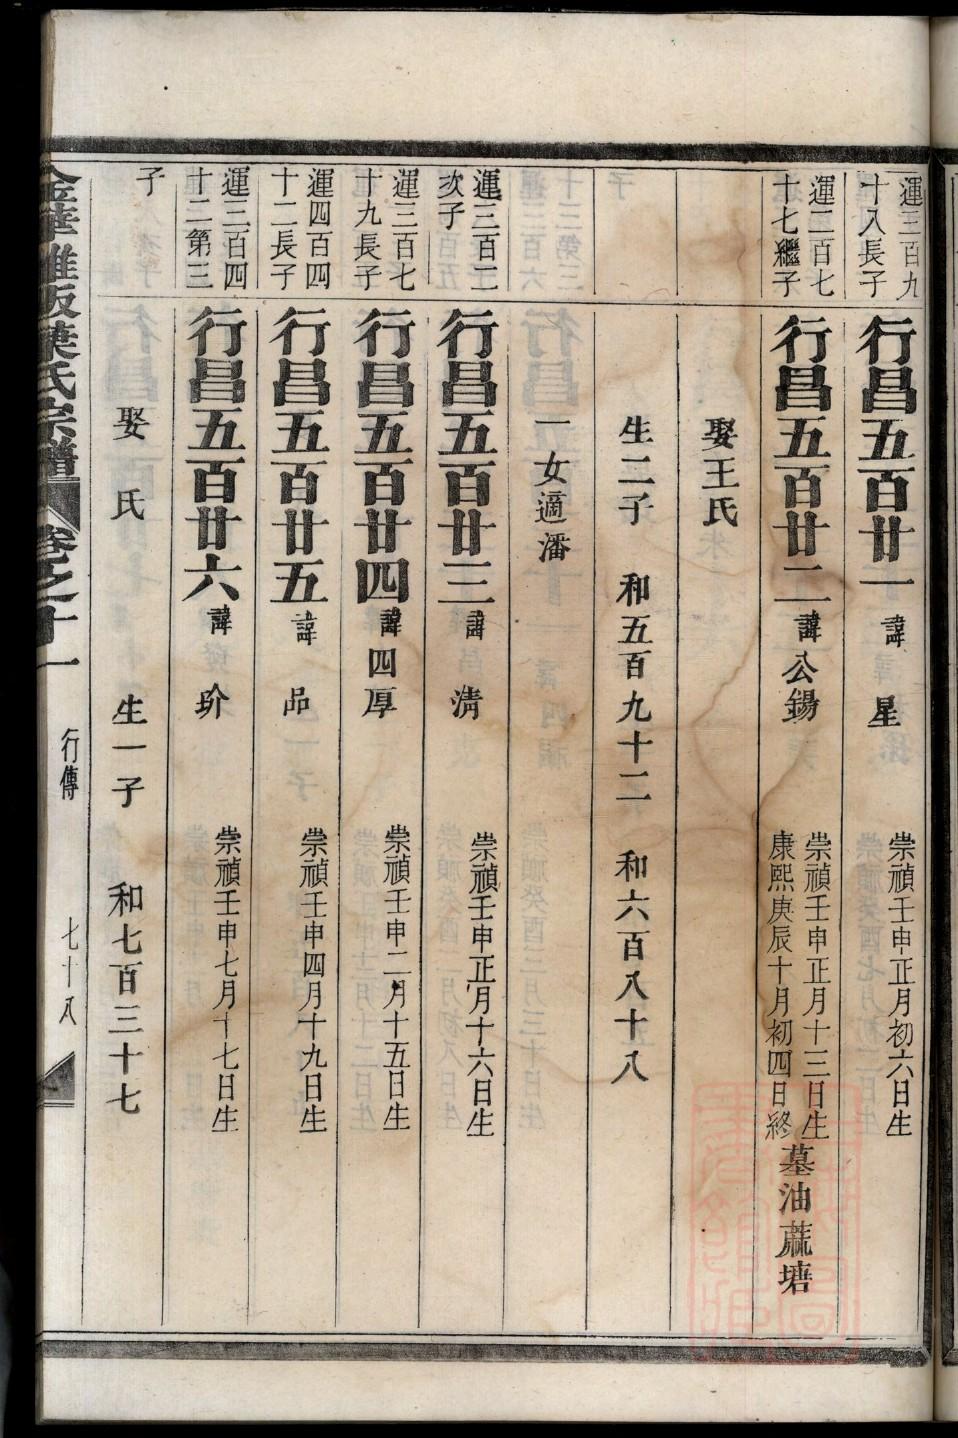 運三百九
十八長子
行昌五百廿一 諱 星 崇禎壬申正月初六日生
運二百七
十七繼子
行昌五百廿二 諱 公錫 崇禎壬申正月十三日生
康熙庚辰十月初四日終 墓油蔴塘
娶王氏
生二子 和五百九十二 和六百八十八
一女適潘
運三百二
次子
行昌五百廿三 諱 淸 崇禎壬申正月十六日生
運三百七
十九長子
行昌五百廿四 諱 四厚 崇禎壬申二月十五日生
運四百四
十二長子
行昌五百廿五 諱 品 崇禎壬申四月十九日生
運三百四
十二第三
子
行昌五百廿六 諱 玠 崇禎壬申七月十七日生
娶 氏 生一子 和七百三十七
金華 阪葉氏宗譜 卷之十一 行傳 七十八